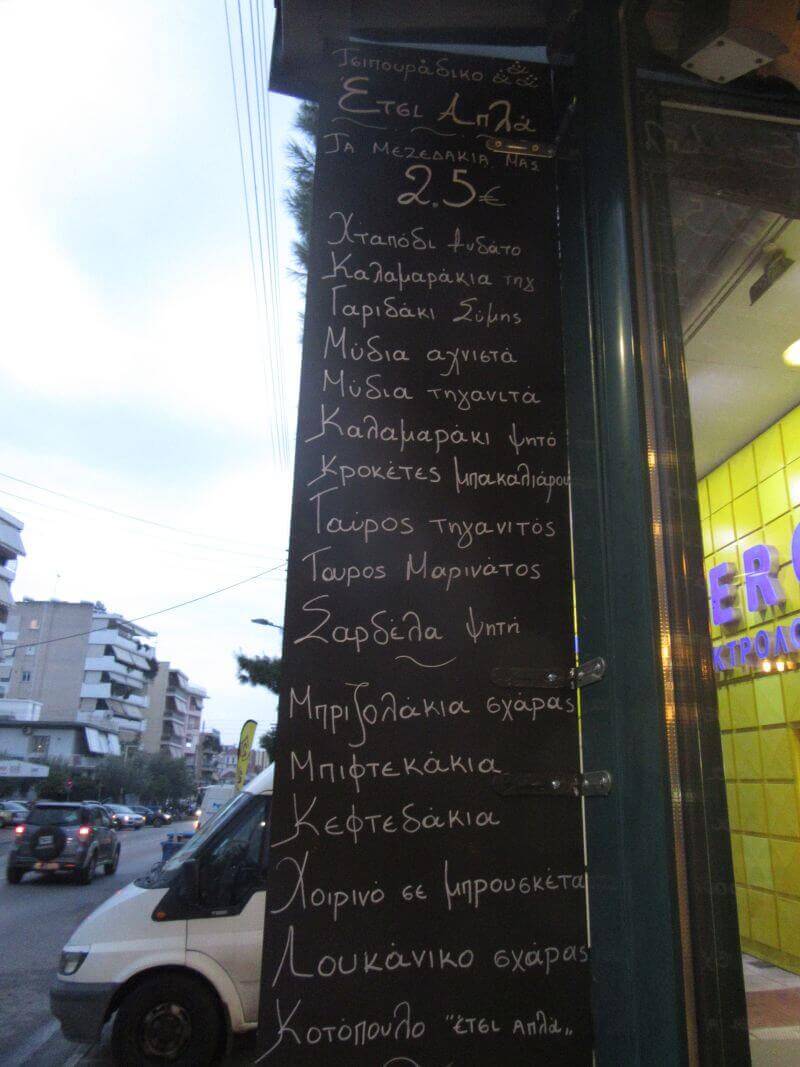 Τσιπουράδικο
Έτσι Απλά
Τα μεζεδάκια μας
2.5€
Χταπόδι ξυδάτο
Καλαμαράκια τηγ
Γαριδάκι Σύμης
Μύδια αχνιστά
Μύδια τηγανιτά
Καλαμαράκι ψητό
Κροκέτες μπακαλιάρου
Γαύρος τηγανιτός
Γαυρος Μαρινάτος
Σαρδέλα ψητή
Μπριζολάκια σχάρας
Μπιφτεκάκια
Κεφτεδάκια
Χοιρινό σε μπρουσκέτα
Λουκάνικο σχάρας
Κοτόπουλο "έτσι απλά"
ER
ΚΤΡΟΛΟ